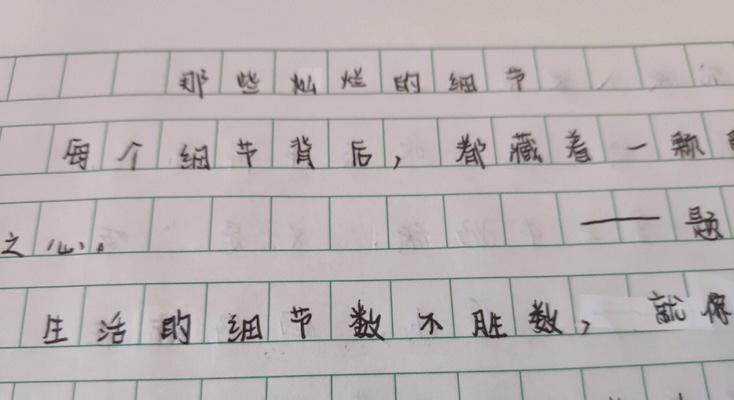 那些灿烂的细节
每个细节背后，都藏着一颗
之心。 ——题
生活的细节数不胜数，就像